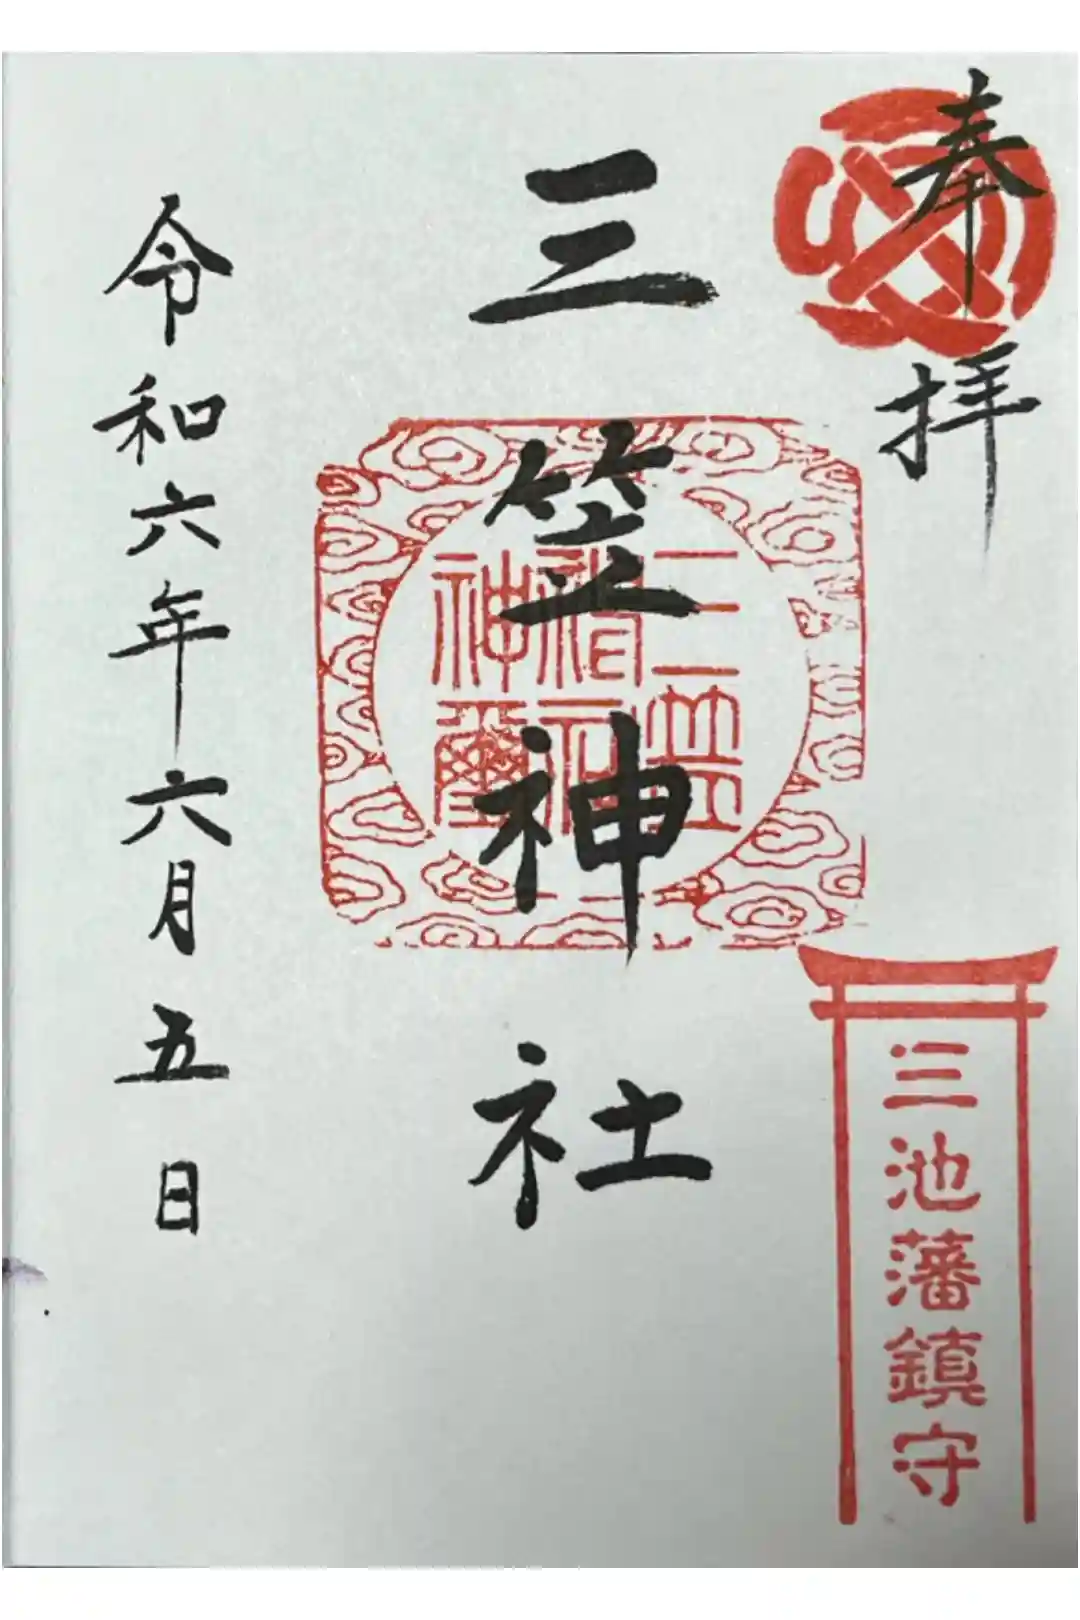 奉拝
三池藩鎮守
三笠神社
三笠神社神璽
令和六年六月五日